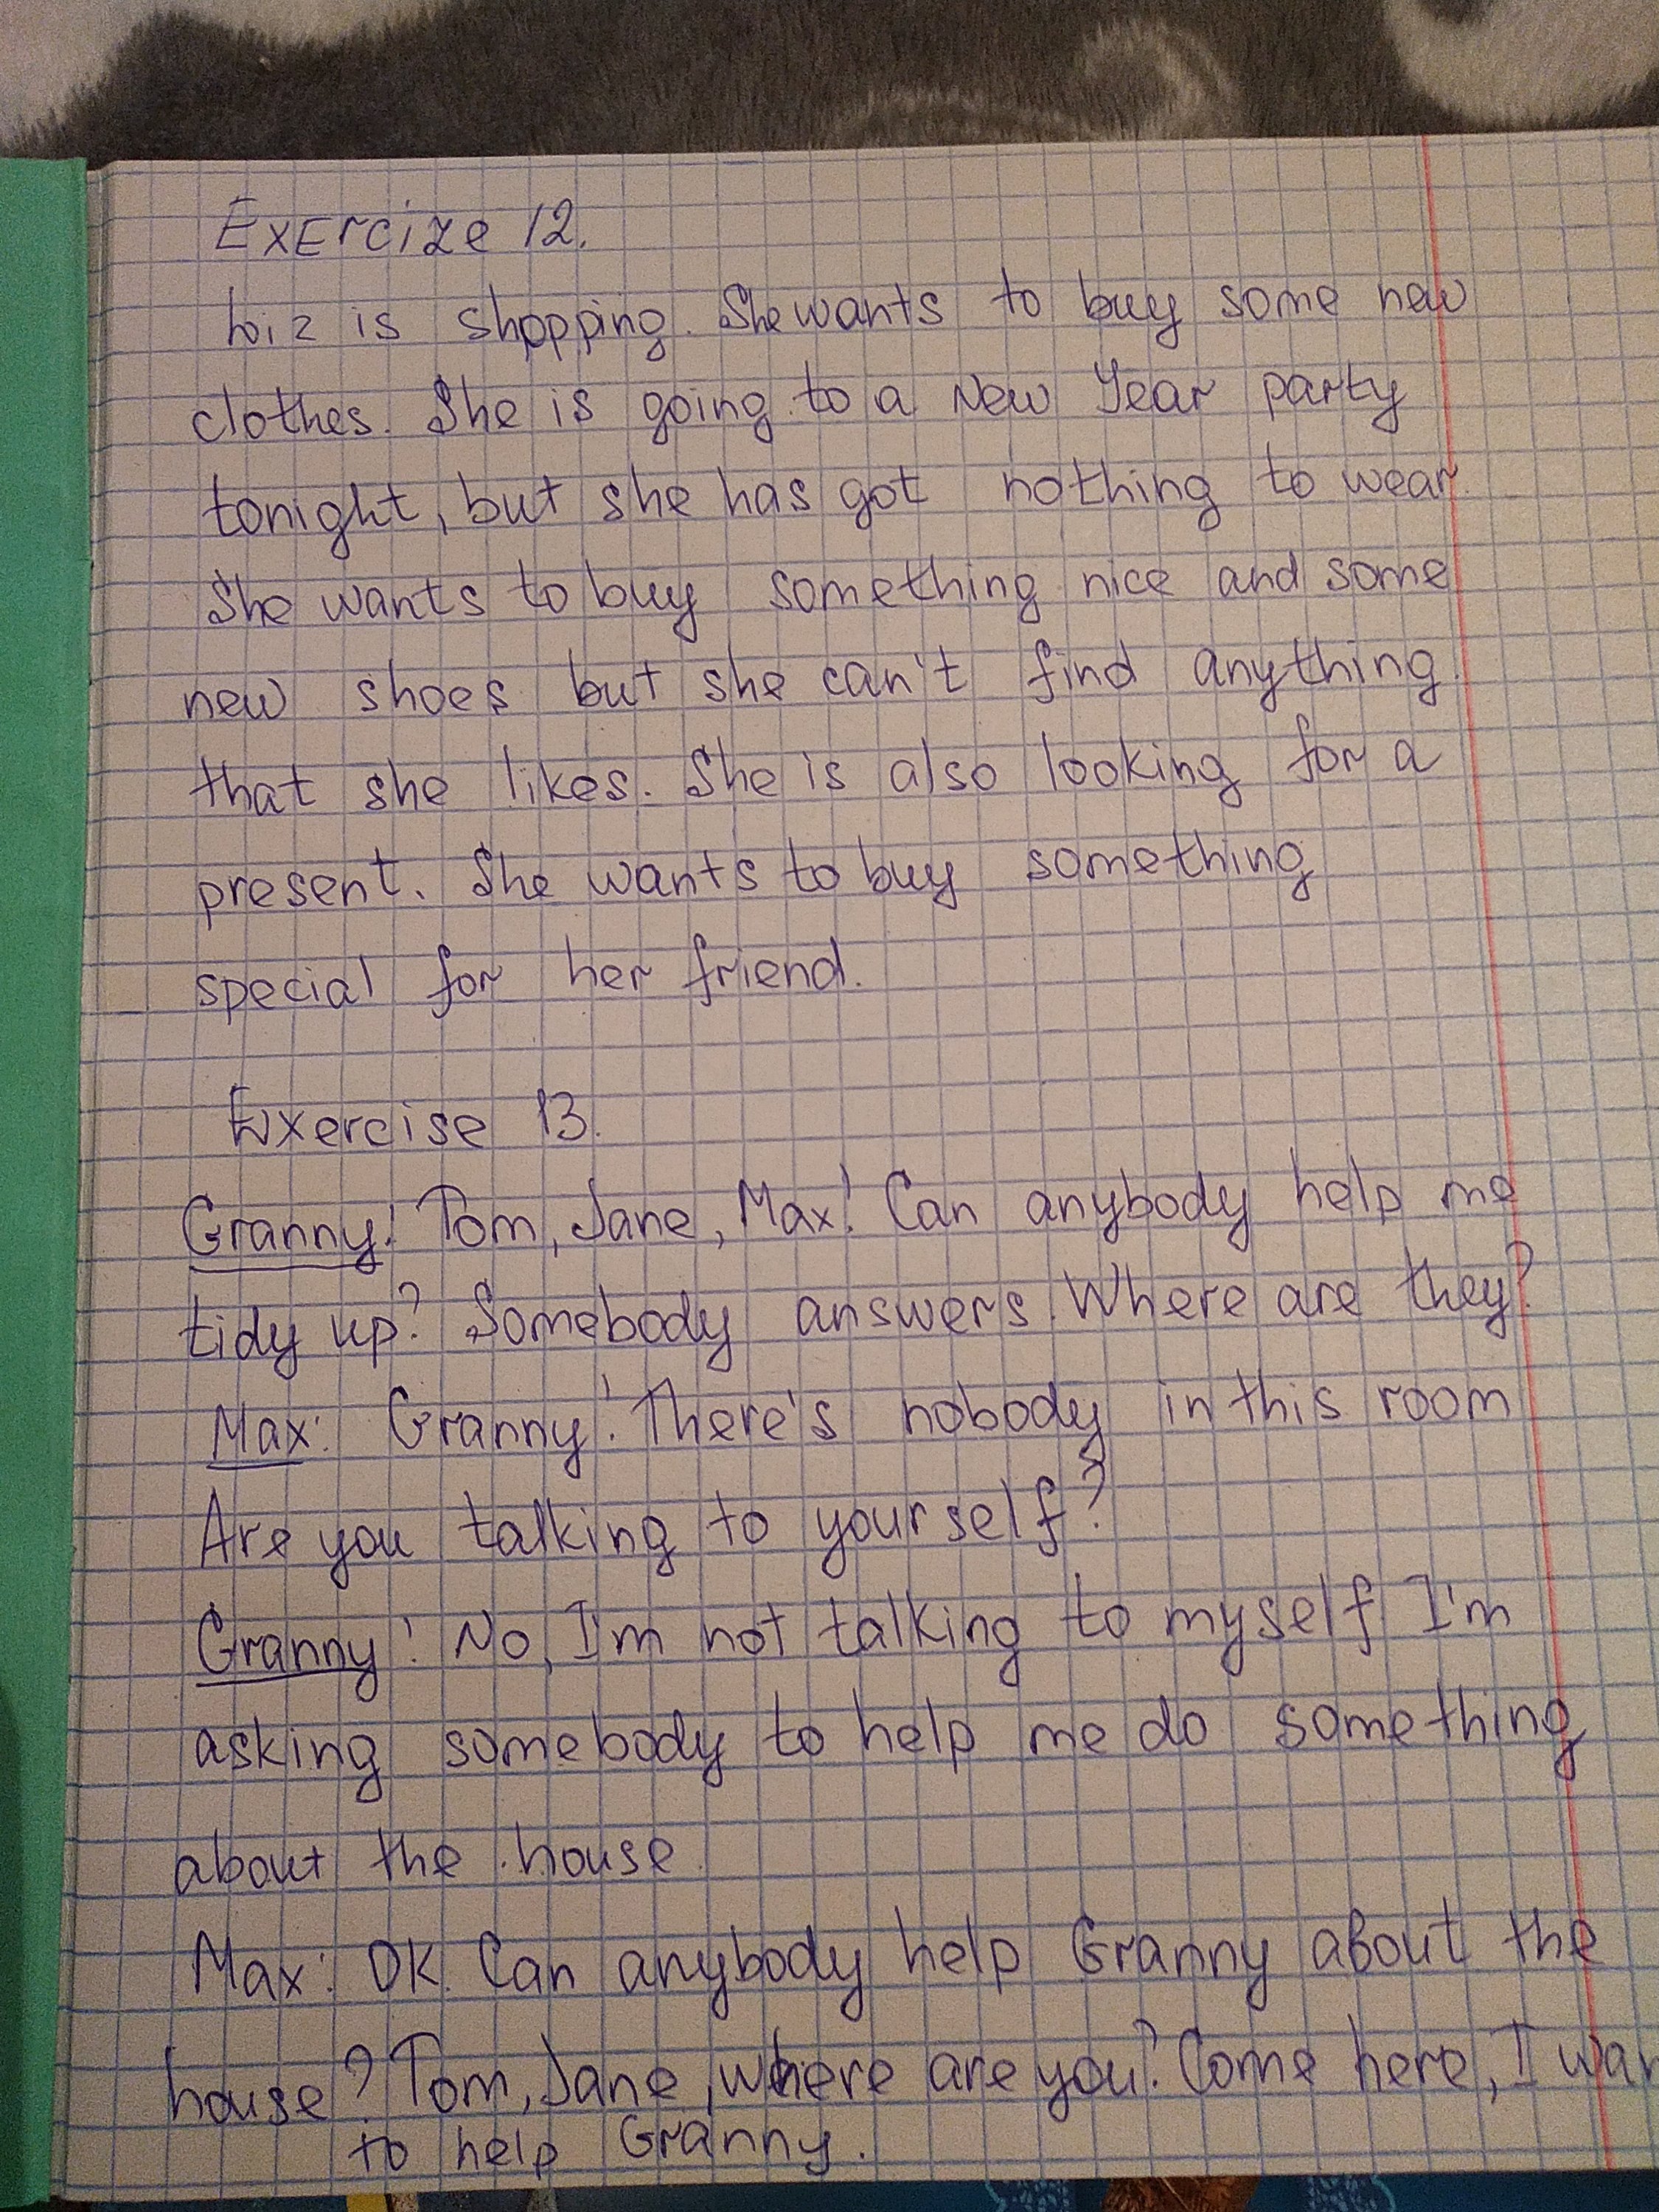 Exercize 12.
Liz is shopping. She wants to buy some new
clothes. She is going to a New Year party
tonight, but she has got nothing to wear.
She wants to buy something nice and some
new shoes but she can't find anything
that she likes. She is also looking for a
present. She wants to buy something
special for her friend.
Exercise 13.
Granny: Tom, Jane, Max! Can anybody help me
tidy up? Somebody answers. Where are they?
Max: Granny! There's nobody in this room
Are you talking to yourself?
Granny: No, I'm not talking to myself I'm
asking somebody to help me do something
about the house.
Max: OK. Can anybody help Granny about the
house? Tom, Jane, where are you? Come here, I wan
to help Granny.